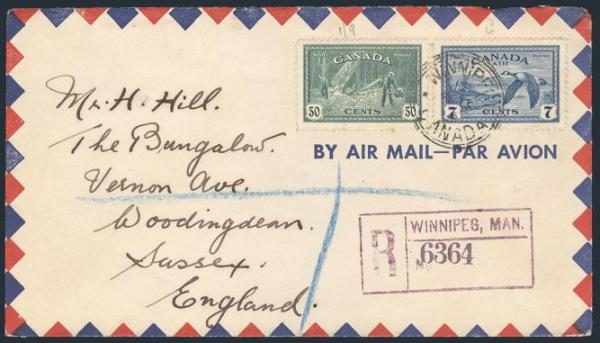 1/9
6
CANADA
50 CENTS 50
CANADA
AIR
7 CENTS 7
WINNIPEG
CANADA
BY AIR MAIL—PAR AVION
Mr. H. Hill.
The Bungalow.
Vernon Ave.
Woodingdean.
Sussex.
England.
R
WINNIPEG, MAN.
No 6364